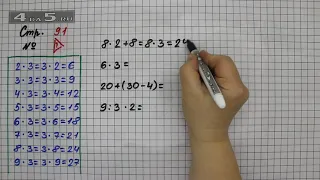 4да5.РУ
Стр. 91
№
2·3=3·2=6
3·3=3·3=9
4·3=3·4=12
5·3=3·5=15
6·3=3·6=18
7·3=3·7=21
8·3=3·8=24
9·3=3·9=27
8·2+8=8·3=24
6·3=
20+(30-4)=
9:3·2=